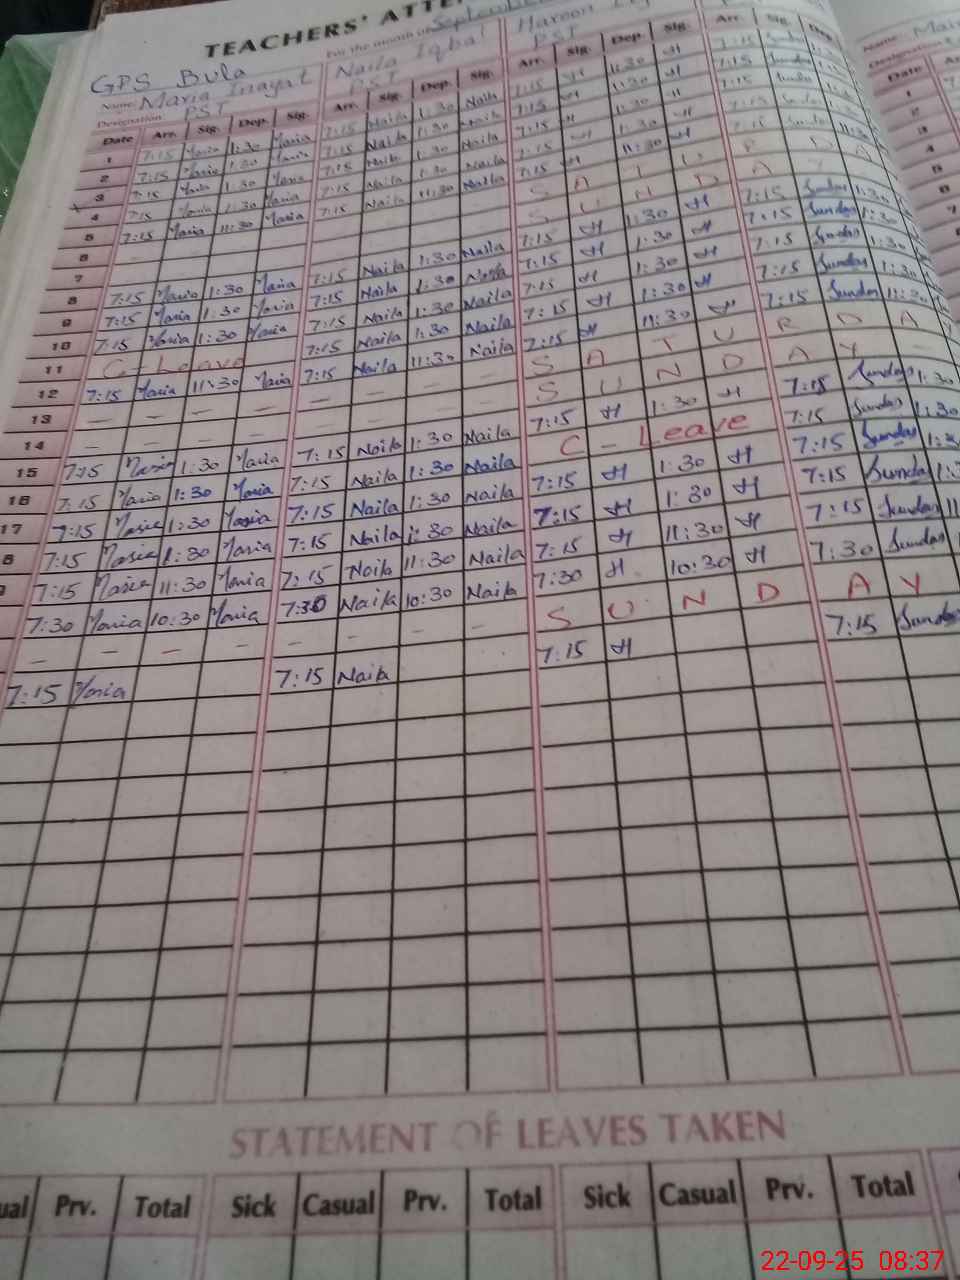 TEACHERS' ATTE
For the month of September
GPS Bula
Name Maria Inayat Naila Iqbal Haroon
Designation PST PST PST
Date Arr. Sig. Dep. Sig. Arr. Sig. Dep. Sig. Arr. Sig. Dep. Sig. Arr. Sig. Dep.
1 7:15 Maria 1:30 Maria 7:15 Naila 1:30 Naila 7:15 H 1:30 H 7:15 Sundas
2 7:15 Maria 1:30 Maria 7:15 Naila 1:30 Naila 7:15 H 1:30 H 7:15 Sundas
3 7:15 Maria 1:30 Maria 7:15 Naila 1:30 Naila 7:15 H 1:30 H 7:15 Sundas
4 7:15 Maria 1:30 Maria 7:15 Naila 1:30 Naila 7:15 H 11:30 H 7:15 Sundas 11:30
5 7:15 Maria 11:30 Maria 7:15 Naila 11:30 Naila S A T U R D A
6 – – – – S U N D A Y
7
8 7:15 Maria 1:30 Maria 7:15 Naila 1:30 Naila 7:15 H 1:30 H 7:15 Sundas 1:30
9 7:15 Maria 1:30 Maria 7:15 Naila 1:30 Naila 7:15 H 1:30 H 7:15 Sundas 1:30
10 7:15 Maria 1:30 Maria 7:15 Naila 1:30 Naila 7:15 H 1:30 H 7:15 Sundas 1:30
11 C – Leave 7:15 Naila 1:30 Naila 7:15 H 1:30 H 7:15 Sundas 1:30
12 7:15 Maria 11:30 Maria 7:15 Naila 11:30 Naila 7:15 H 11:30 H 7:15 Sundas 11:30
13 – – – – – – – – S A T U R D A Y
14 – – – – – – – – S U N D A Y –
15 7:15 Maria 1:30 Maria 7:15 Naila 1:30 Naila 7:15 H 1:30 H 7:15 Sundas 1:30
16 7:15 Maria 1:30 Maria 7:15 Naila 1:30 Naila C – Leave 7:15 Sundas 1:30
17 7:15 Maria 1:30 Maria 7:15 Naila 1:30 Naila 7:15 H 1:30 H 7:15 Sundas
8 7:15 Maria 1:30 Maria 7:15 Naila 1:30 Naila 7:15 H 1:30 H 7:15 Sunda
7:15 Maria 11:30 Maria 7:15 Naila 11:30 Naila 7:15 H 11:30 H 7:15 Sundas 11
7:30 Maria 10:30 Maria 7:30 Naila 10:30 Naila 7:30 H 10:30 H 7:30 Sundas
– – – – – – – – S U N D A Y
7:15 Maria 7:15 Naila 7:15 H 7:15 Sundas
STATEMENT OF LEAVES TAKEN
ual Prv. Total Sick Casual Prv. Total Sick Casual Prv. Total
22-09-25 08:37